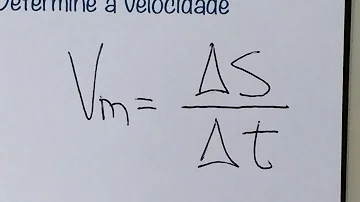 Determine a velocidade
Vm = ΔS
Δt